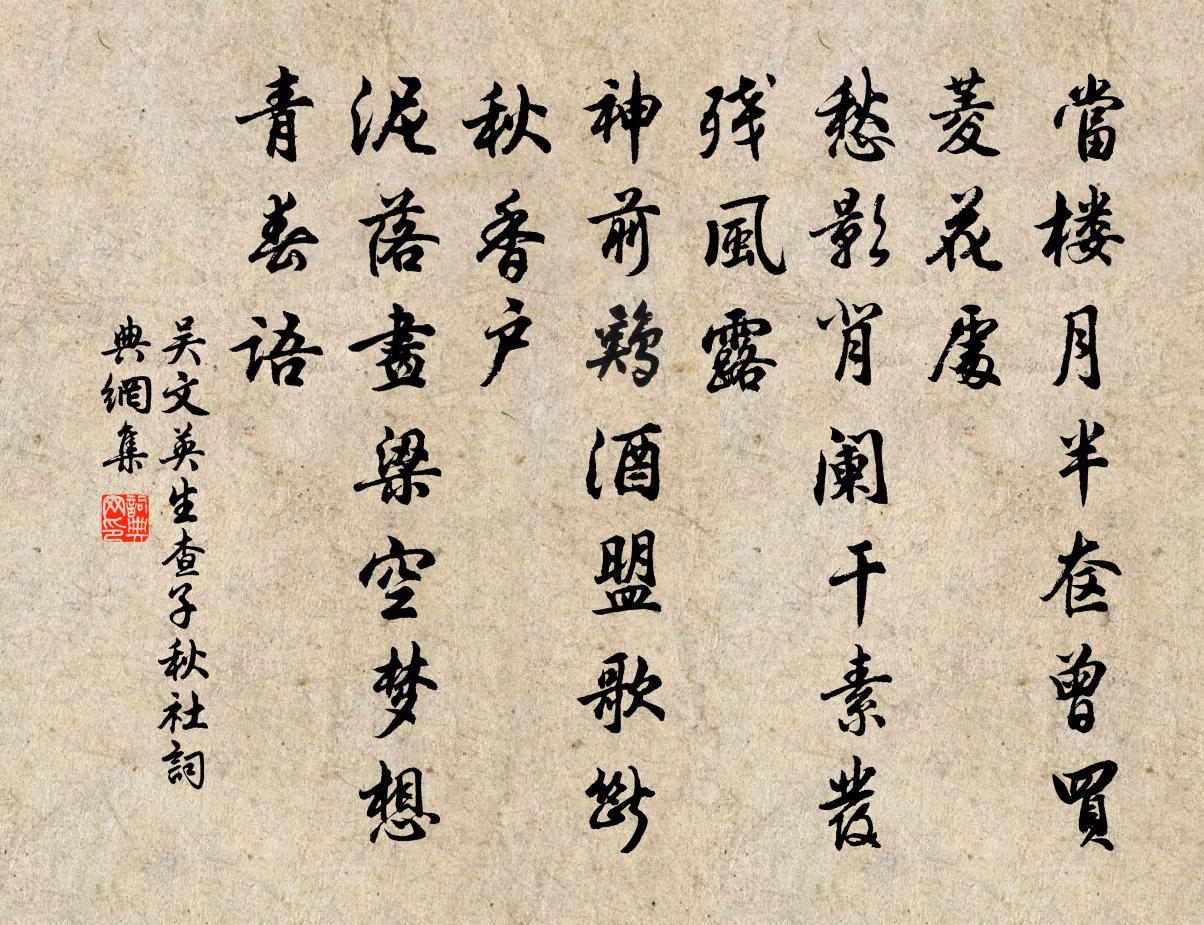 當楼月半奁曾買
菱花處
愁影背阑干素发
残風露
神前鷄酒盟歌斷
秋香户
泥落畫梁空梦想
青春語
吴文英生查子秋社詞
典網集
詞典网印